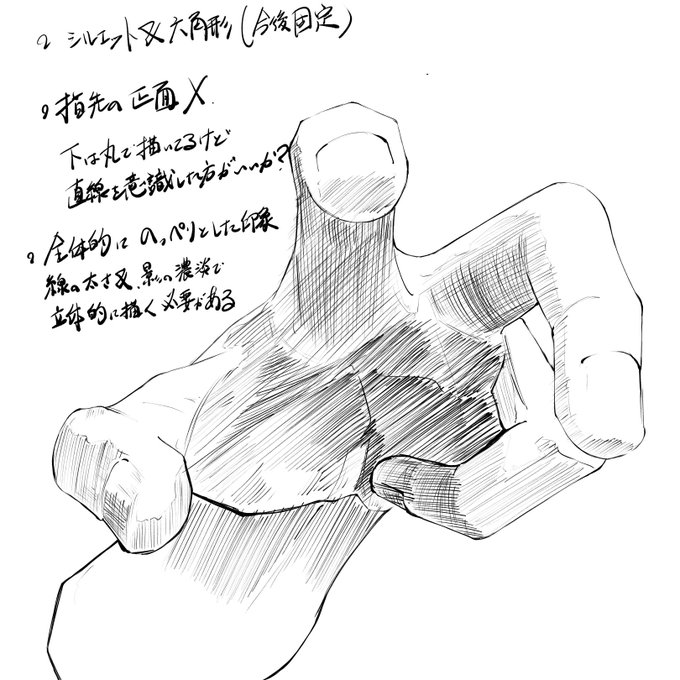 シルエット又六角形(今後固定)
指先の正面X.
下は丸で描いてるけど
直線を意識した方がいいか?
全体的にのっぺりとした印象
線の太さ又、影の濃淡で
立体的に描く必要がある